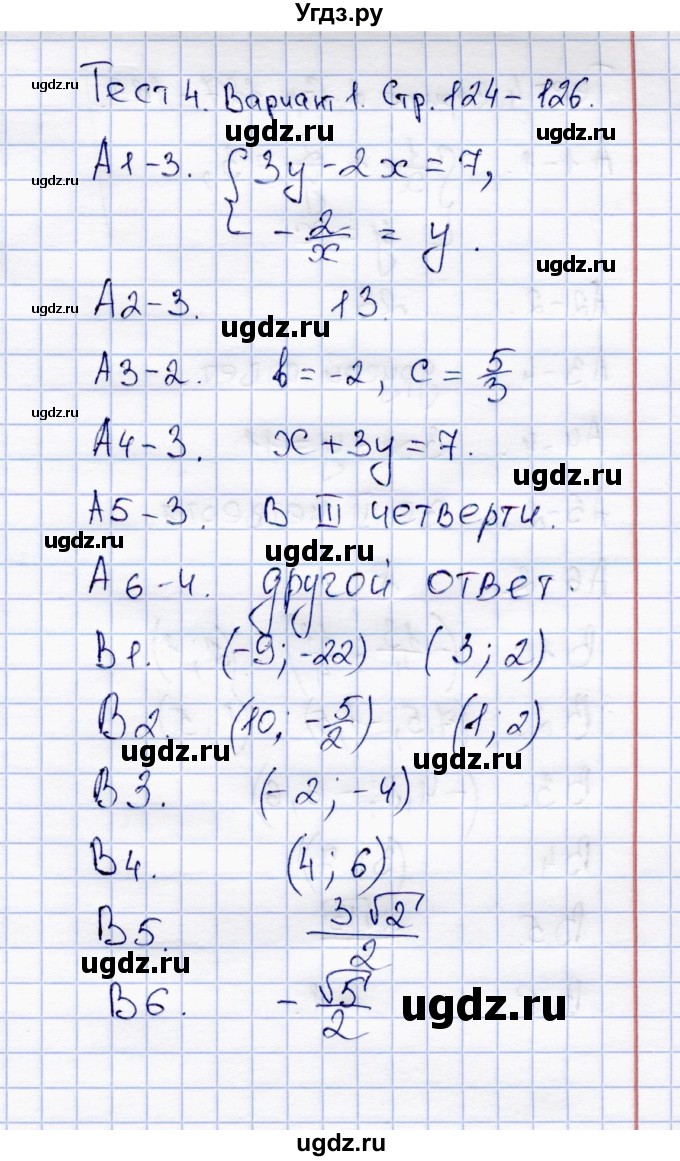 Угдз.ру
ugdz.ru
Тест 4. Вариант 1. Стр. 124-126.
ugdz.ru
A1-3. { 3y - 2x = 7,
ugdz.ru
- 2/x = y.
ugdz.ru
A2-3. 13.
ugdz.ru
ugdz.ru
A3-2. b = -2, c = 5/3
ugdz.ru
A4-3. x + 3y = 7.
ugdz.ru
A5-3. В III четверти.
ugdz.ru
ugdz.ru
A6-4. другой ответ.
B1. (-9; -22) (3; 2)
ugdz.ru
B2. (10; -5/2) (1; 2)
ugdz.ru
ugdz.ru
B3. (-2; -4)
B4. (4; 6)
B5. 3√2/2
ugdz.ru
B6. - √5/2
ugdz.ru
ugdz.ru